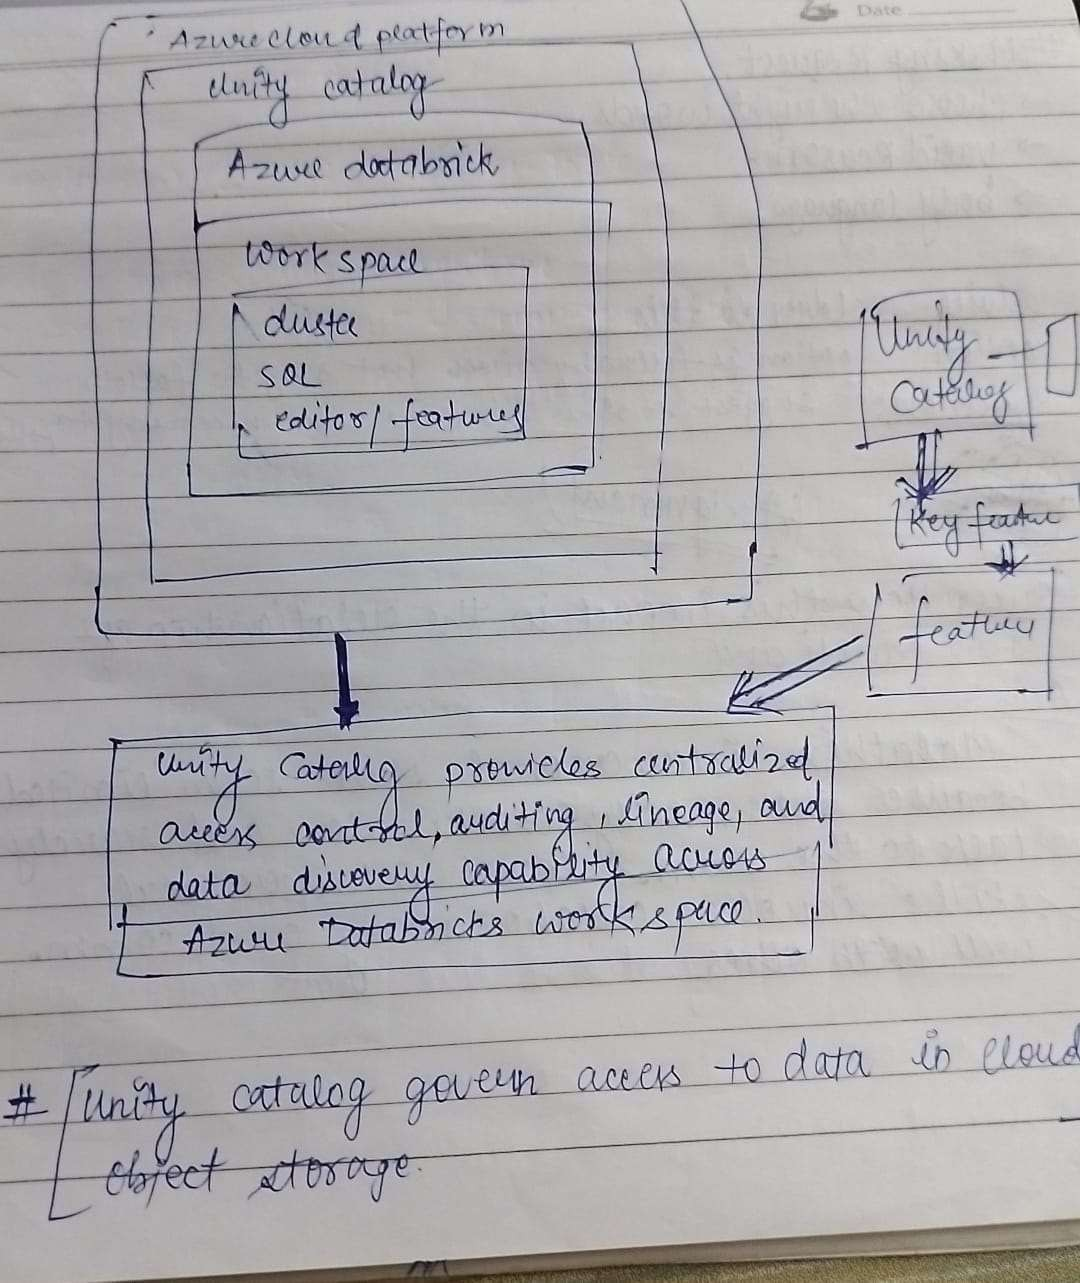 Date
Azure cloud platform
Unity catalog
Azure databrick
work space
cluster
SQL
editor/ features
Unity
Catalog
Key feature
feature
Unity Catalog provides centralized
access control, auditing, lineage, and
data discovery capability across
Azure Databricks workspace.
# Unity catalog govern access to data in cloud
object storage.